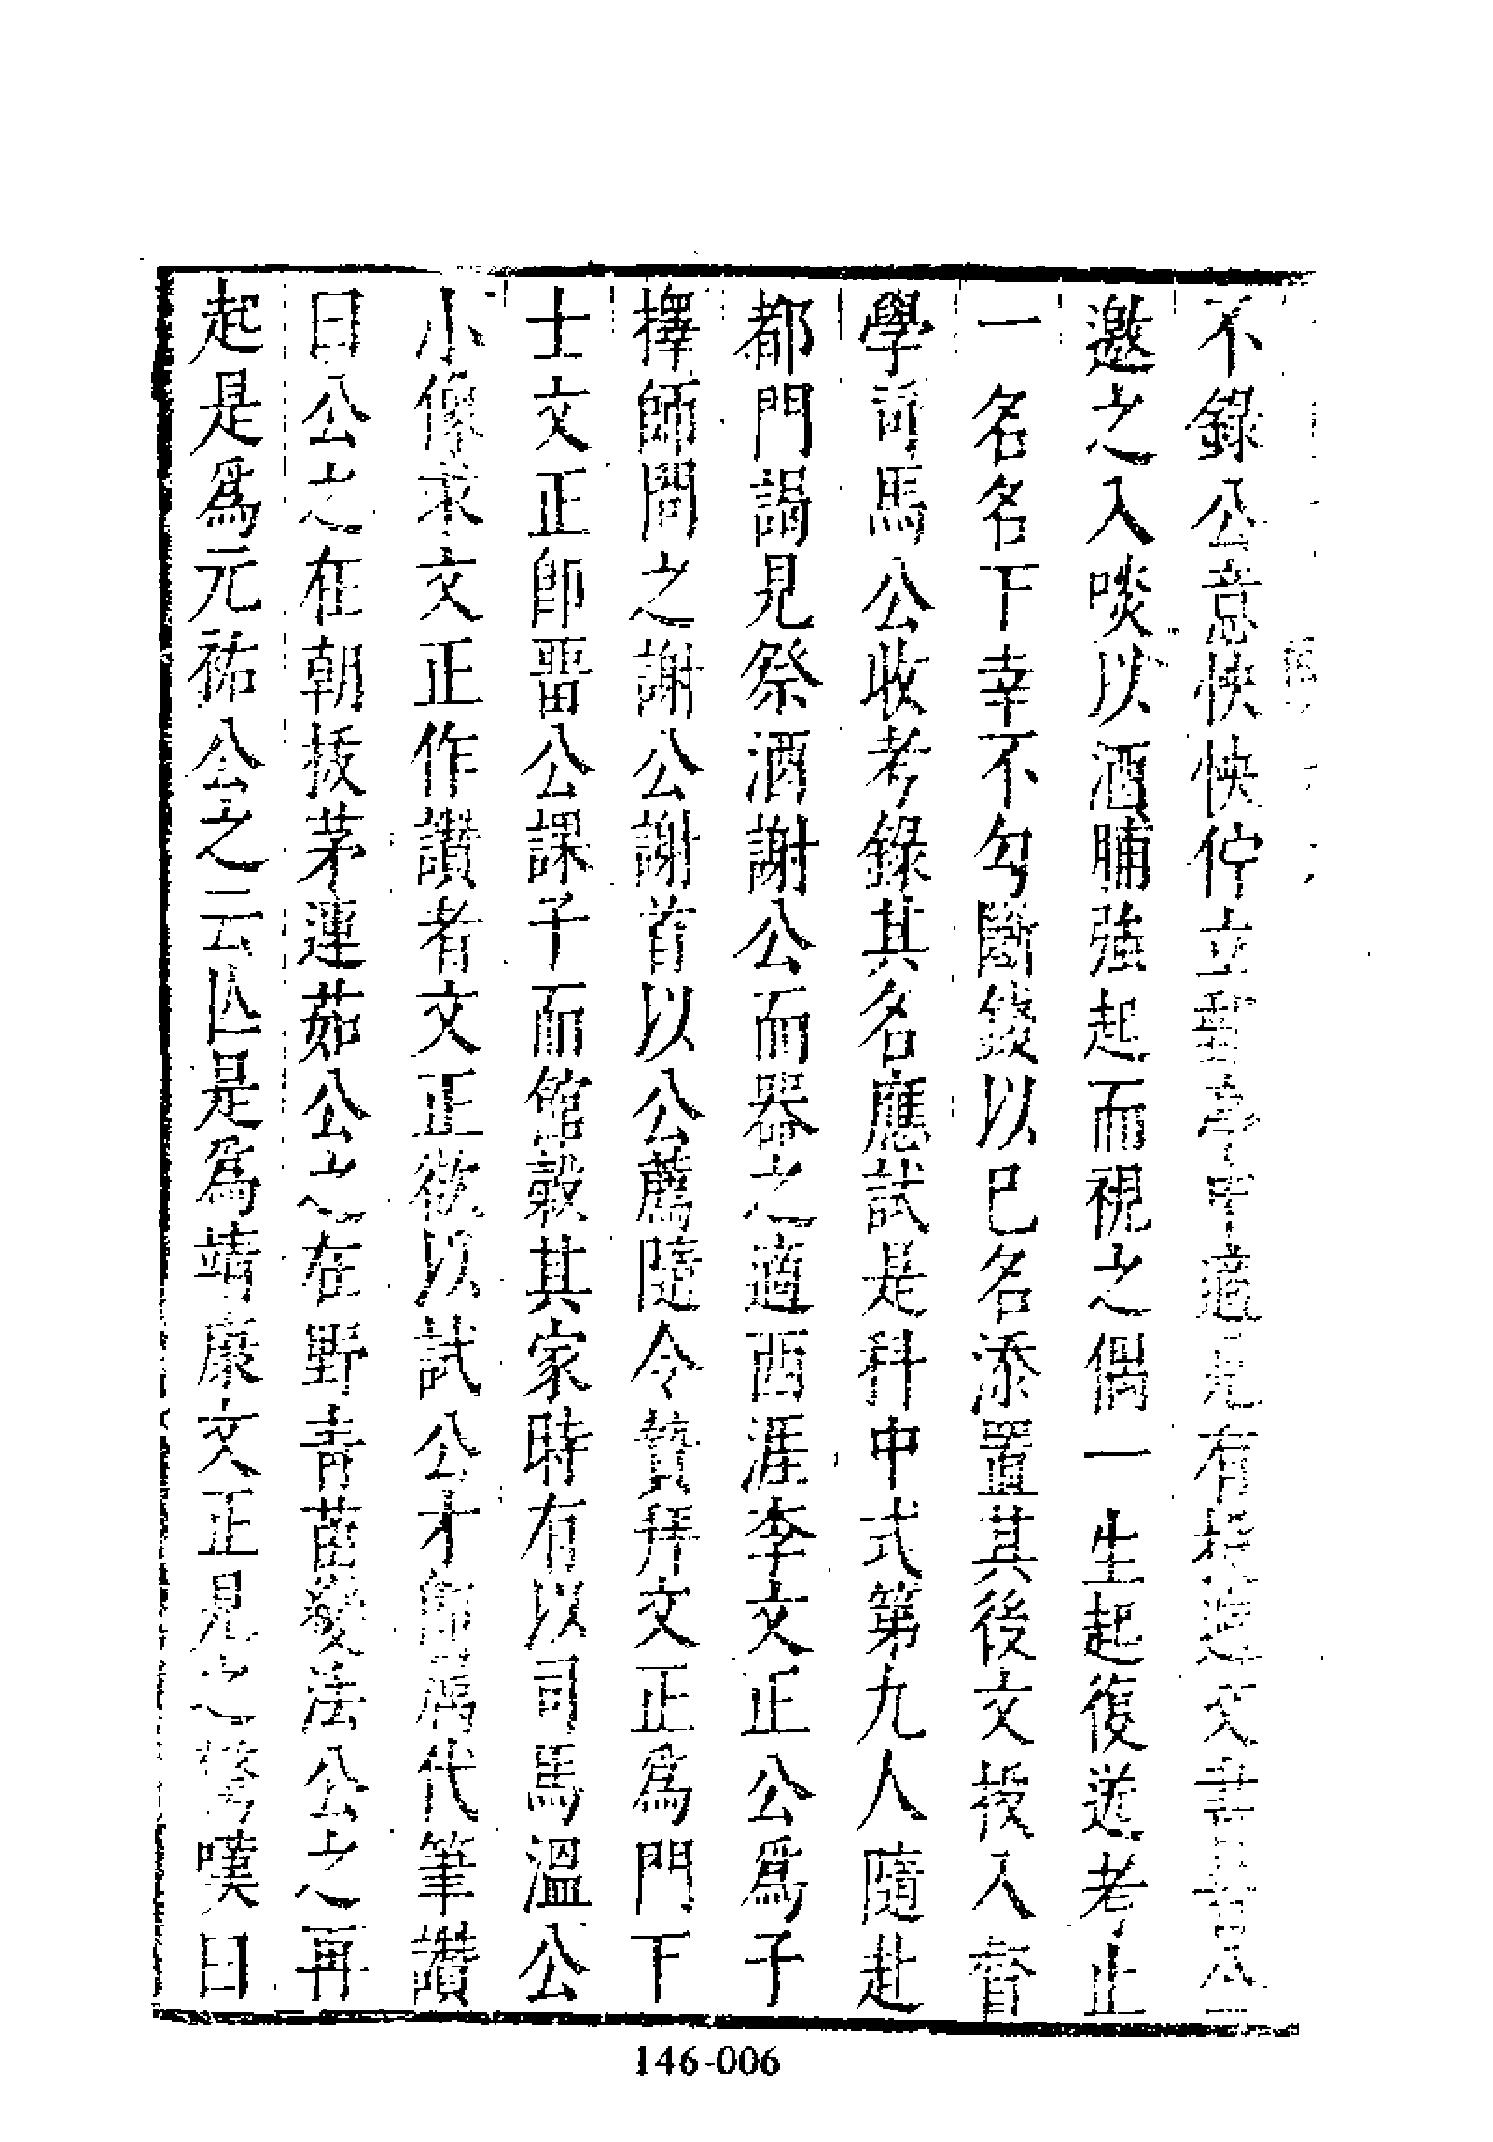 不錄公意怏怏佇立郵亭中適見有投遞文書者公
邀之入啖以酒脯強起而視之偶一生起復送考止
一名名下幸不勾斷錢以己名添置其後文投入督
學司馬公收考錄其名應試是科中式第九人隨赴
都門謁見祭酒謝公而器之適西涯李文正公為子
擇師問之謝公謝首以公薦隨令贄拜文正為門下
士文正即畱公課子而館穀其家時有以司馬溫公
小像求文正作讚者文正欲以試公才即屬代筆讚
曰公之在朝拔茅連茹公之在野青苗變法公之再
起是為元祐公之云亾是為靖康文正見之驚嘆曰
146-006